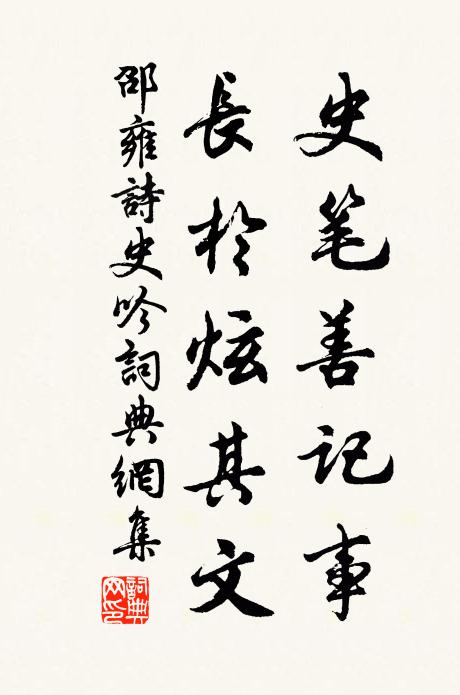 史笔善记事
長於炫其文
邵雍詩史吟詞典網集
詞典网印